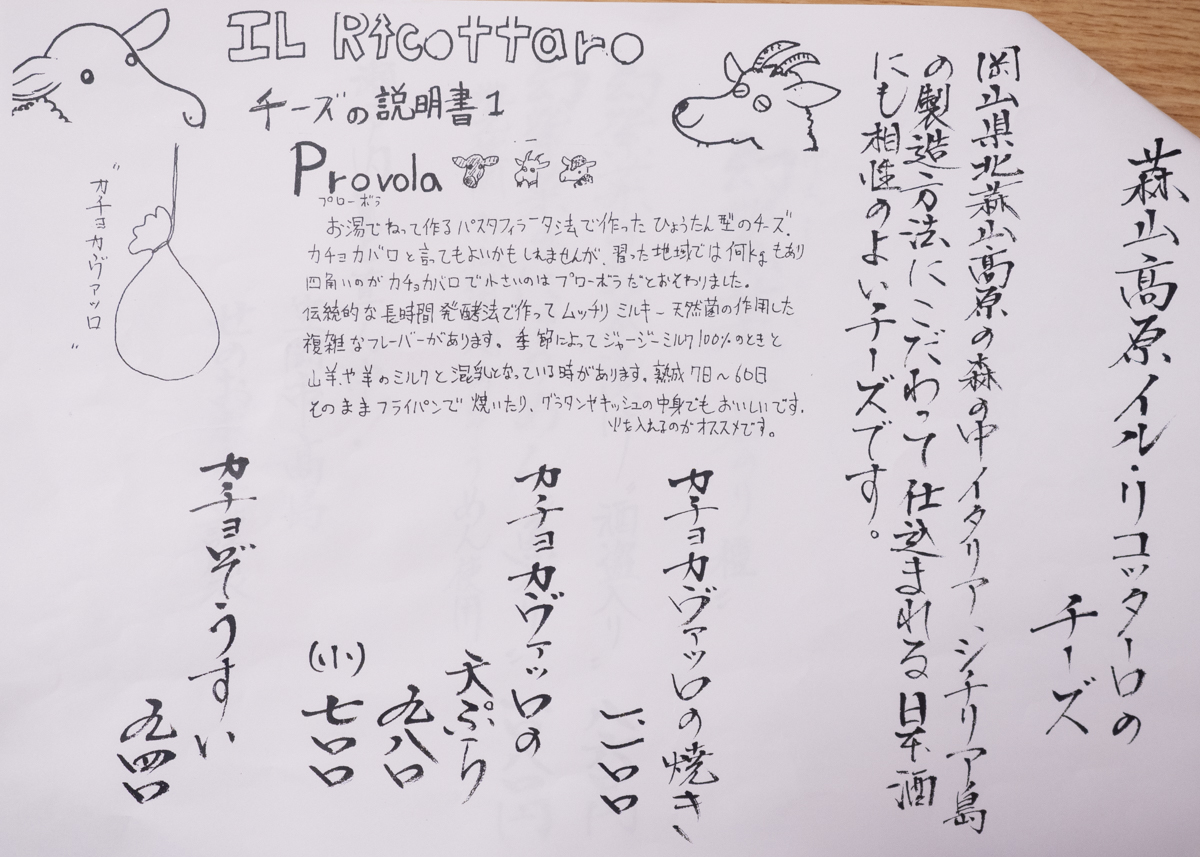 蒜山高原イル・リコッターロの
チーズ
岡山県北蒜山高原の森の中イタリア、シチリア島
の製造方法にこだわって仕込まれる日本酒
にも相性のよいチーズです。
IL Ricottaro
チーズの説明書1
Provola
プローボラ
お湯でねって作るパスタフィラータ法で作ったひょうたん型のチーズ。
カチョカバロと言ってもよいかもしれませんが、習った地域では何kgもあり
四角いのがカチョカバロで小さいのはプローボラだとおそわりました。
伝統的な長時間発酵法で作ってムッチリミルキー天然菌の作用した
複雑なフレーバーがあります。季節によってジャージーミルク100%のときと
山羊や羊のミルクと混乳となっている時があります。熟成7日〜60日
そのままフライパンで焼いたり、グラタンやキッシュの中身でもおいしいです。
火を入れるのがオススメです。
"カチョカヴァッロ"
カチョカヴァッロの焼き
一、一〇〇
カチョカヴァッロの
天ぷら
九八〇
(小)七〇〇
カチョぞうすい
九四〇